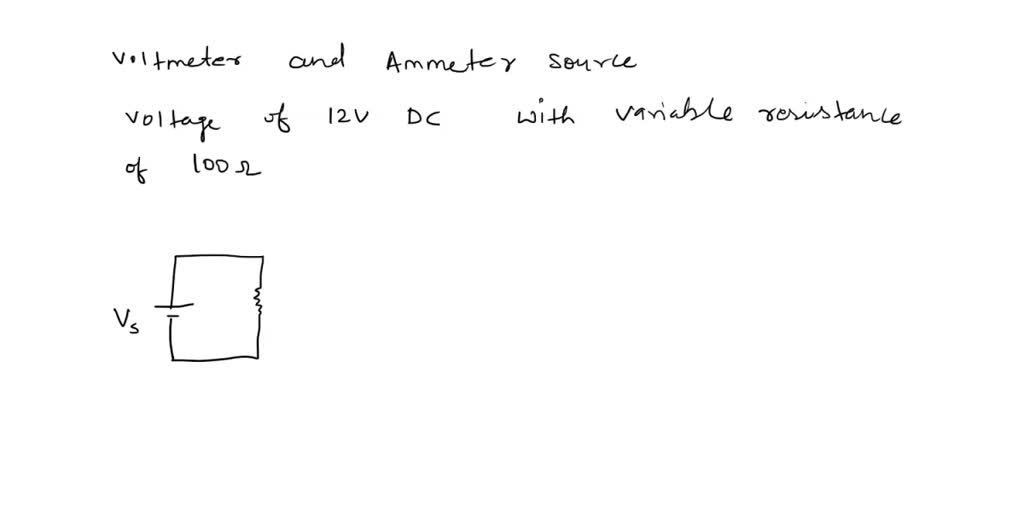 Voltmeter and Ammeter source
voltage of 12V DC with variable resistance
of 100Ω
Vs